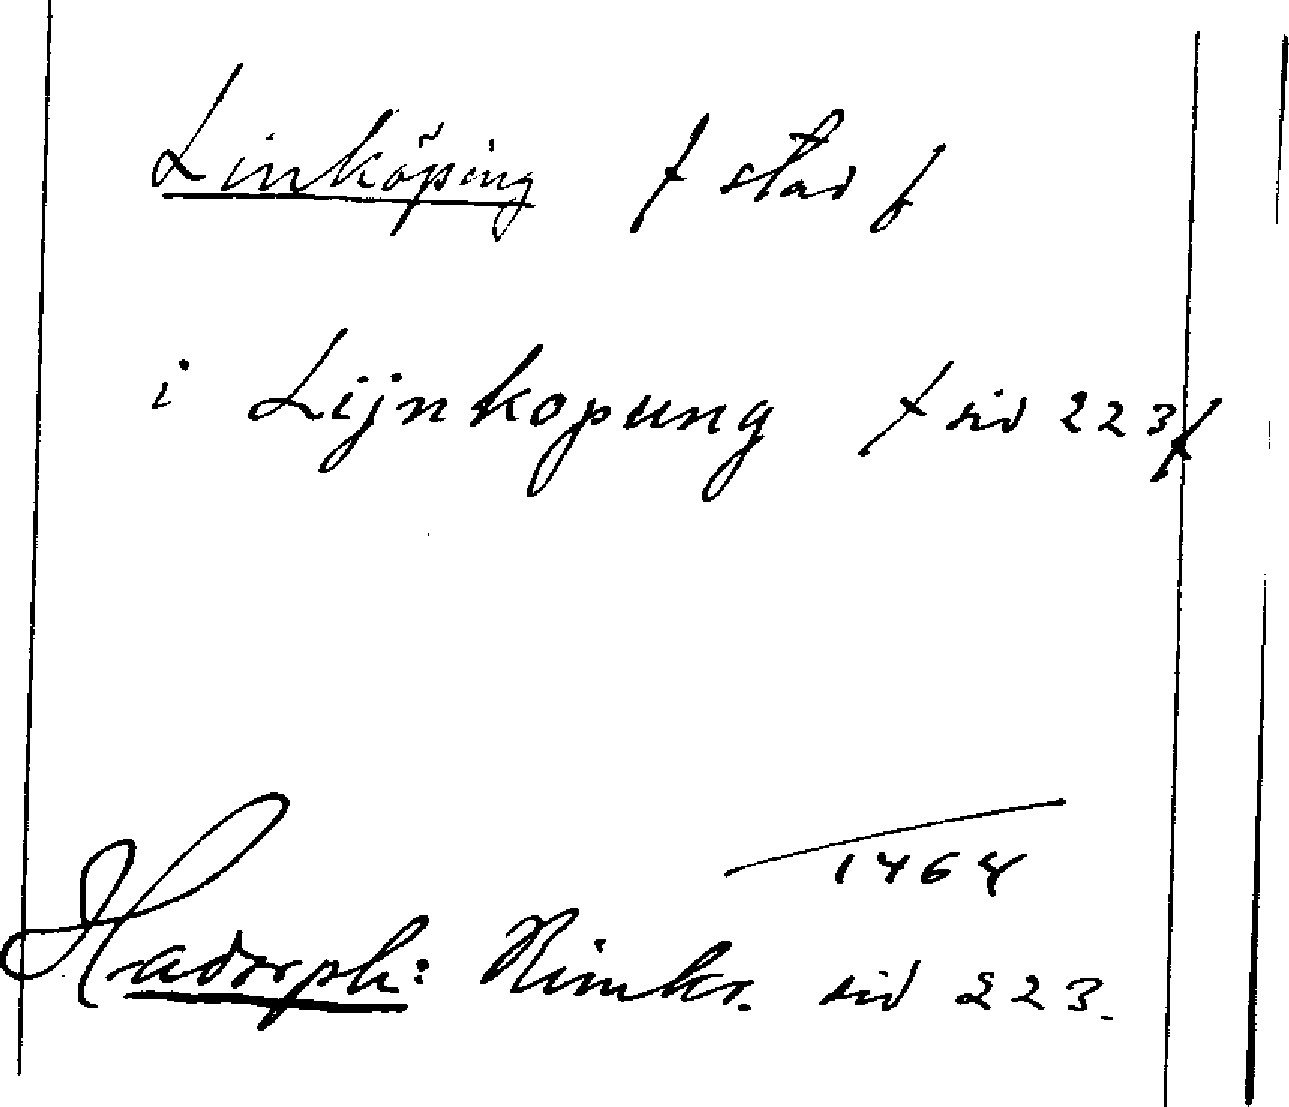 Linköping / stad /
i Lijnkopung / sid 223/
1464
Hadorph: Rimkr. sid 223.